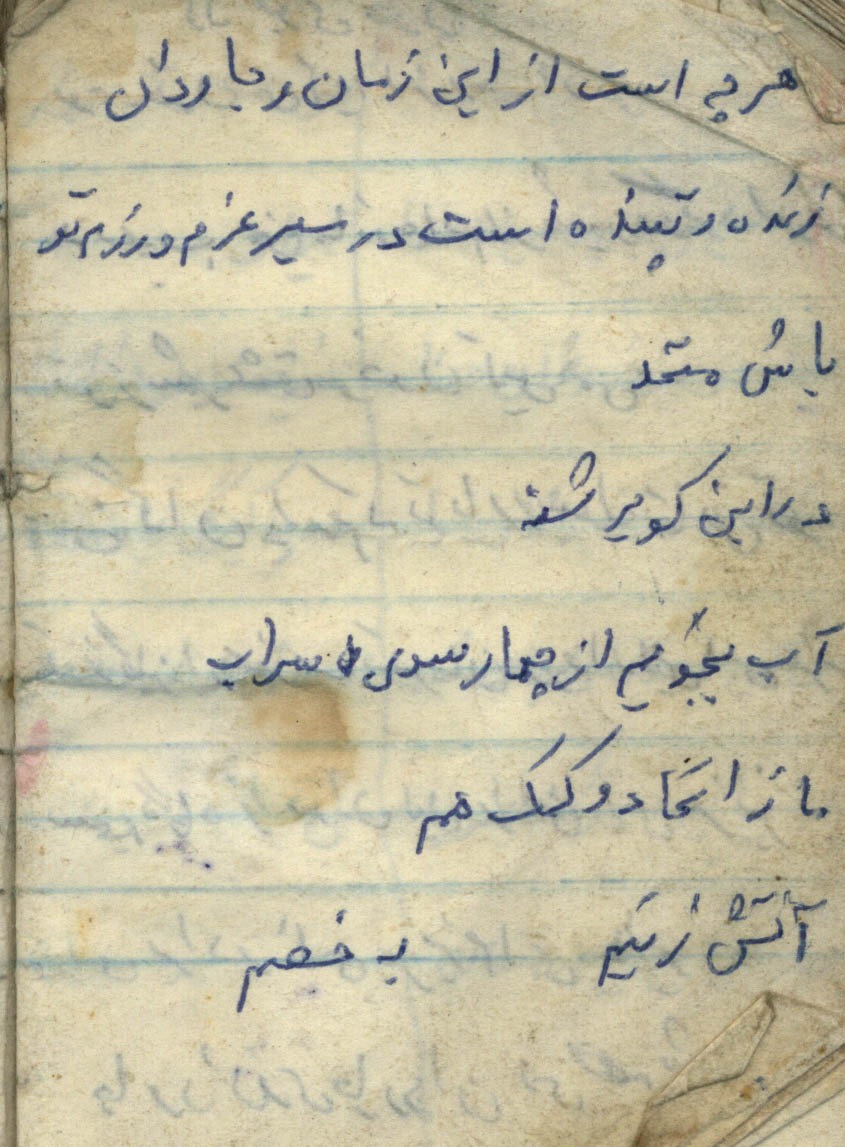 هر چه است از این زمان و جاودان
زنده و تپنده است در مسیر عزم و رزم تو
باش متحد
در این کویر تشنه
آب بجوئیم از چهار سوی سراب
باز اتحاد و کمک هم
آتش زنیم به خصم